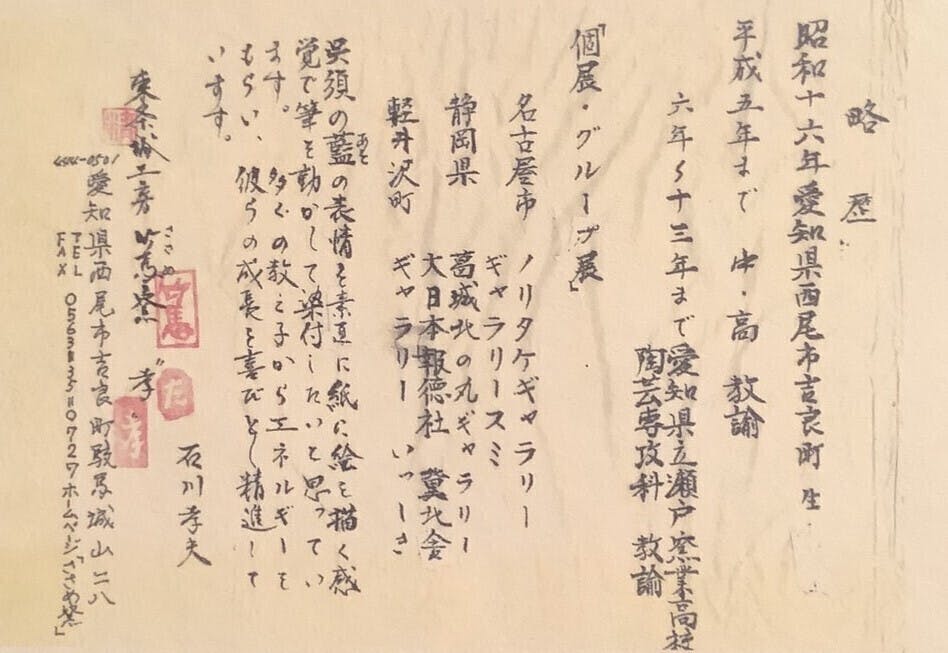 略歴
昭和十六年愛知県西尾市吉良町生
平成五年まで 中・高 教諭
六年〜十三年まで愛知県立瀬戸窯業高校
陶芸専攻科 教諭
「個展・グループ展」
名古屋市 ノリタケギャラリー
ギャラリースミ
静岡県 葛城北の丸ギャラリー
大日本報徳社 冀北舎
軽井沢町 ギャラリー いっしき
呉須の藍の表情を素直に紙に絵を描く感
あを
覚で筆を動かして染付したいと思ってい
ます。 多くの教え子からエネルギーを
もらい、彼らの成長を喜びとし精進して
います。
石川孝夫
工房 笹窯 〃 孝 〃
ささめ
愛知県西尾市吉良町駿馬城山二八
TEL
FAX 0563=35=0727 ホームページ「ささめ窯」